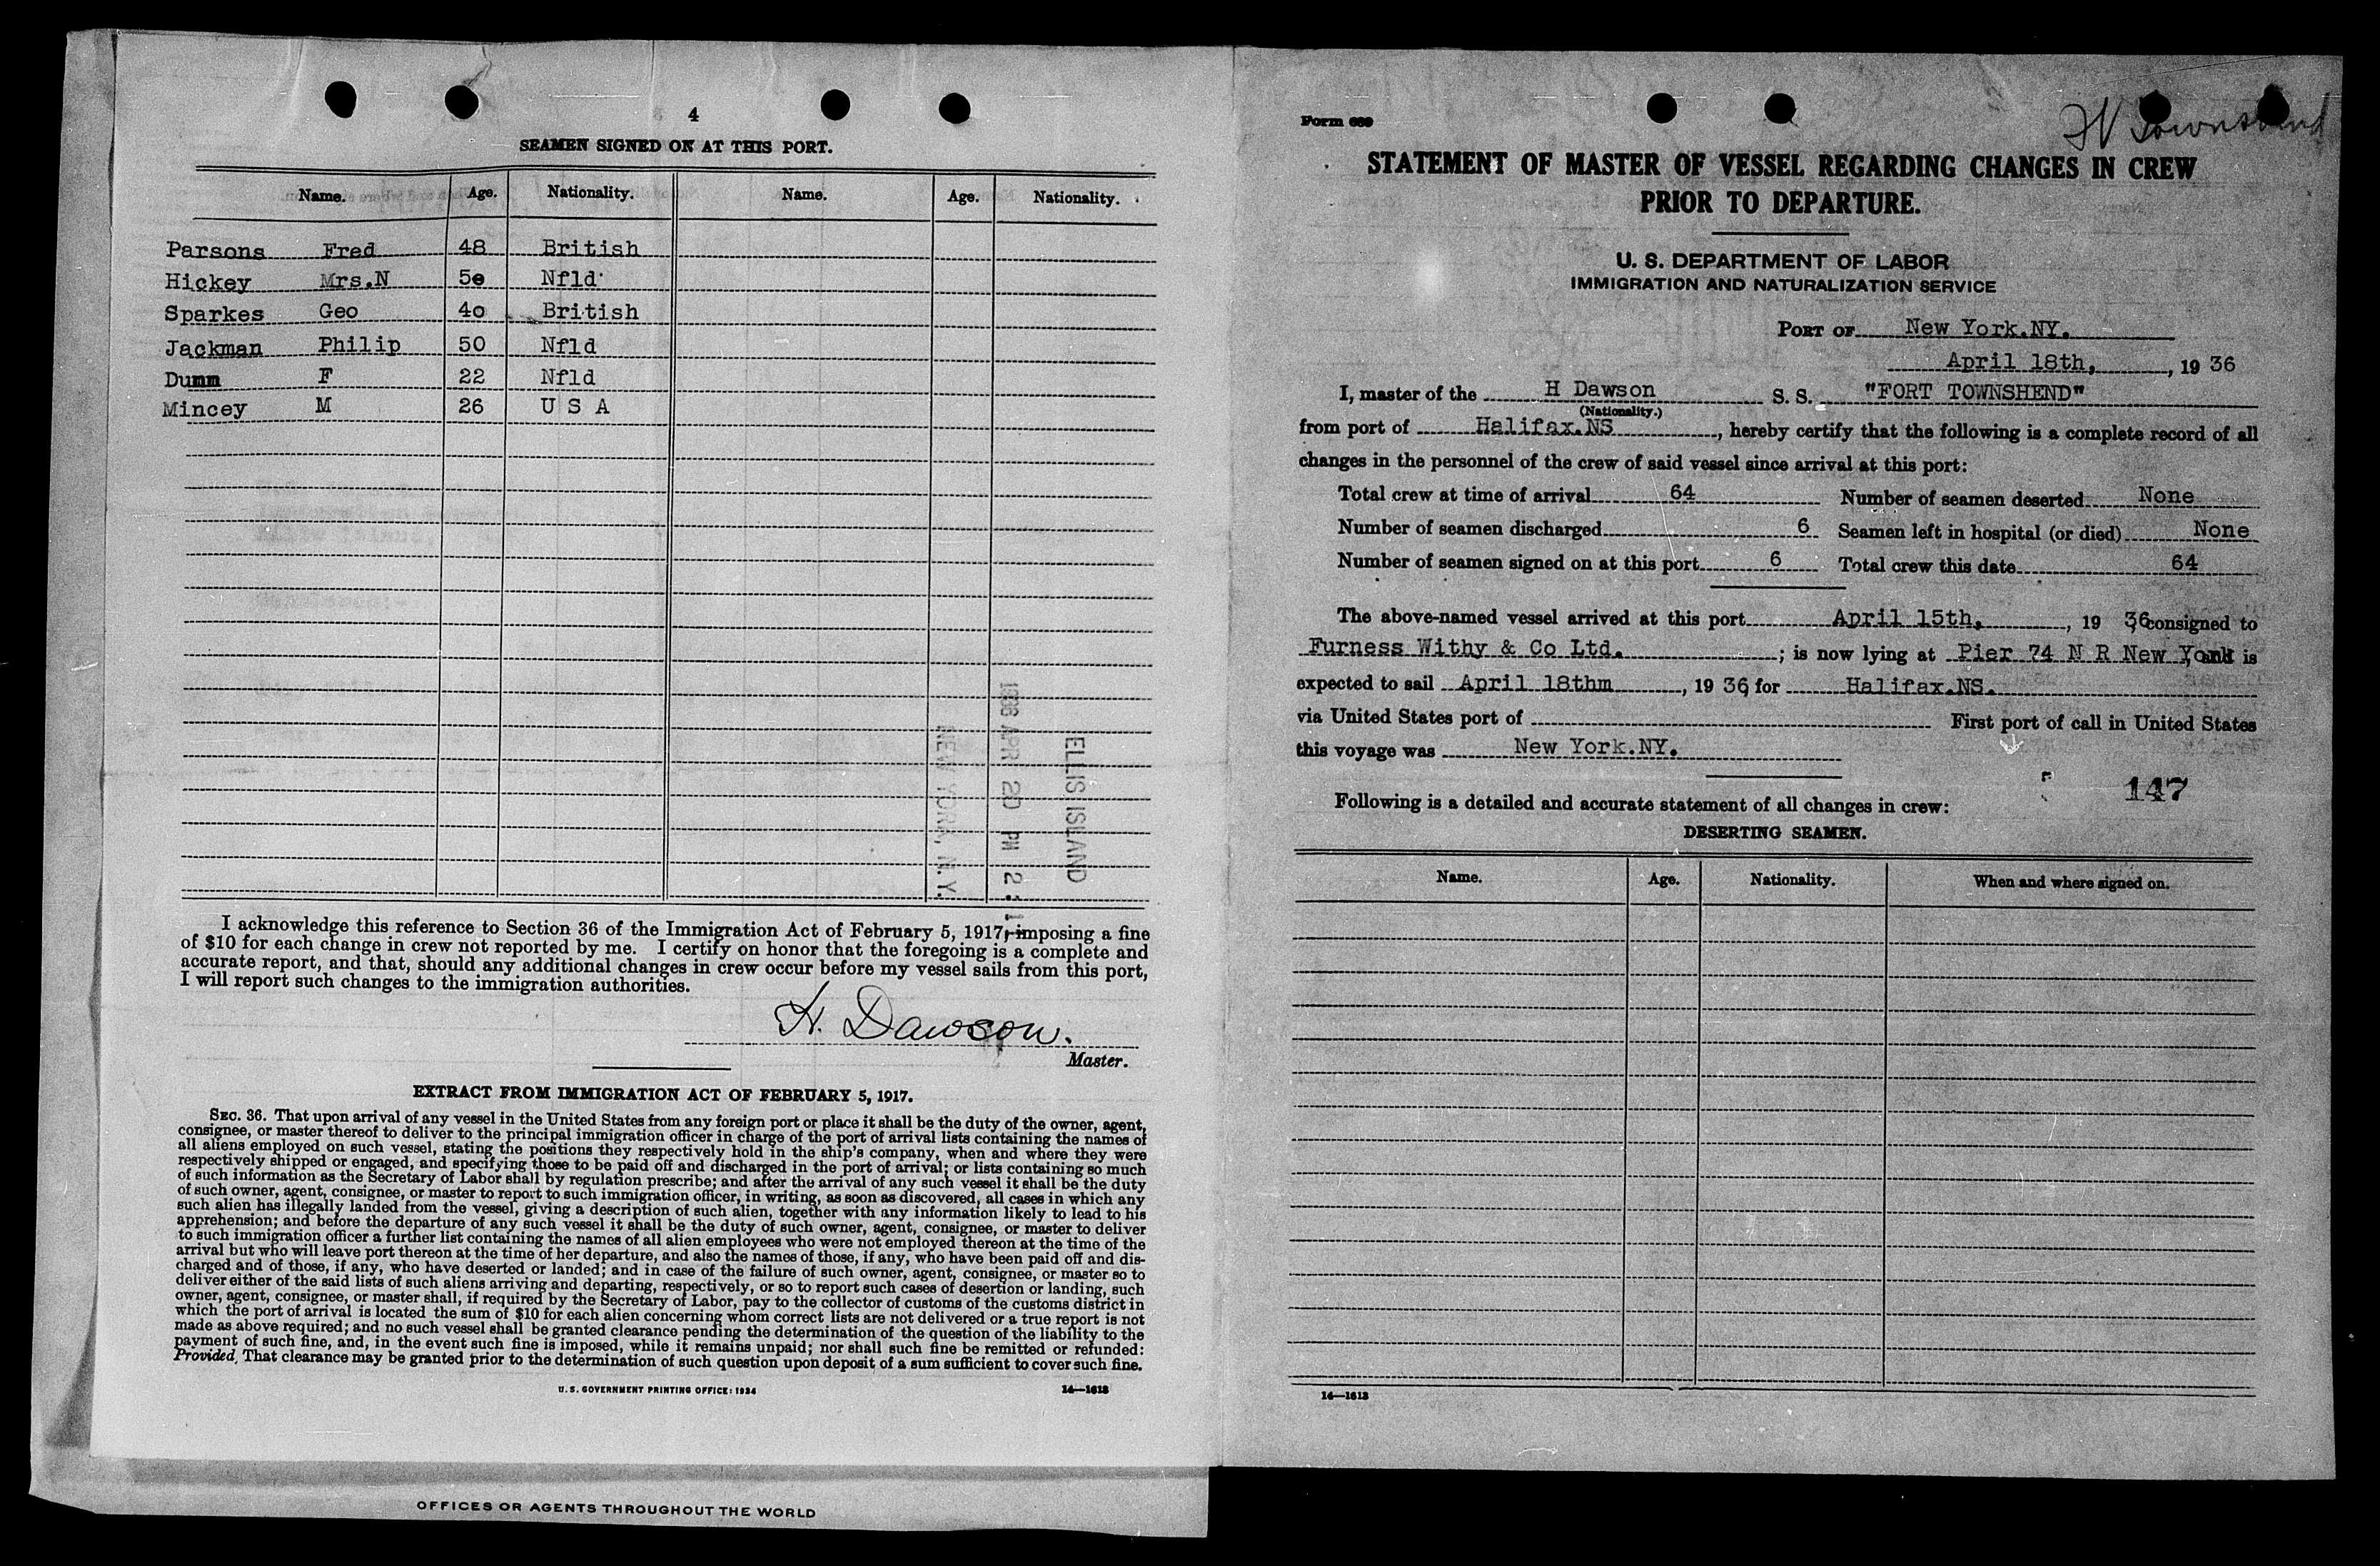 4
SEAMEN SIGNED ON AT THIS PORT.
Name. Age. Nationality. Name. Age. Nationality.
Parsons Fred 48 British
Hickey Mrs.N 5e Nfld
Sparkes Geo 4o British
Jackman Philip 50 Nfld
Dunn F 22 Nfld
Mincey M 26 U S A
ELLIS ISLAND
APR 20 PM 2:
NEW YORK, N.Y.
I acknowledge this reference to Section 36 of the Immigration Act of February 5, 1917, imposing a fine
of $10 for each change in crew not reported by me. I certify on honor that the foregoing is a complete and
accurate report, and that, should any additional changes in crew occur before my vessel sails from this port,
I will report such changes to the immigration authorities.
H. Dawson.
Master.
EXTRACT FROM IMMIGRATION ACT OF FEBRUARY 5, 1917.
SEC. 36. That upon arrival of any vessel in the United States from any foreign port or place it shall be the duty of the owner, agent,
consignee, or master thereof to deliver to the principal immigration officer in charge of the port of arrival lists containing the names of
all aliens employed on such vessel, stating the positions they respectively hold in the ship's company, when and where they were
respectively shipped or engaged, and specifying those to be paid off and discharged in the port of arrival; or lists containing so much
of such information as the Secretary of Labor shall by regulation prescribe; and after the arrival of any such vessel it shall be the duty
of such owner, agent, consignee, or master to report to such immigration officer, in writing, as soon as discovered, all cases in which any
such alien has illegally landed from the vessel, giving a description of such alien, together with any information likely to lead to his
apprehension; and before the departure of any such vessel it shall be the duty of such owner, agent, consignee, or master to deliver
to such immigration officer a further list containing the names of all alien employees who were not employed thereon at the time of the
arrival but who will leave port thereon at the time of her departure, and also the names of those, if any, who have been paid off and dis-
charged and of those, if any, who have deserted or landed; and in case of the failure of such owner, agent, consignee, or master so to
deliver either of the said lists of such aliens arriving and departing, respectively, or so to report such cases of desertion or landing, such
owner, agent, consignee, or master shall, if required by the Secretary of Labor, pay to the collector of customs of the customs district in
which the port of arrival is located the sum of $10 for each alien concerning whom correct lists are not delivered or a true report is not
made as above required; and no such vessel shall be granted clearance pending the determination of the question of the liability to the
payment of such fine, and, in the event such fine is imposed, while it remains unpaid; nor shall such fine be remitted or refunded:
Provided, That clearance may be granted prior to the determination of such question upon deposit of a sum sufficient to cover such fine.
U.S. GOVERNMENT PRINTING OFFICE: 1934 14—1613
OFFICES OR AGENTS THROUGHOUT THE WORLD
Form 689
Townshend
STATEMENT OF MASTER OF VESSEL REGARDING CHANGES IN CREW
PRIOR TO DEPARTURE.
U. S. DEPARTMENT OF LABOR
IMMIGRATION AND NATURALIZATION SERVICE
PORT OF New York.NY.
April 18th, , 19 36
I, master of the H Dawson S. S. "FORT TOWNSHEND"
(Nationality.)
from port of Halifax.NS , hereby certify that the following is a complete record of all
changes in the personnel of the crew of said vessel since arrival at this port:
Total crew at time of arrival 64 Number of seamen deserted None
Number of seamen discharged 6 Seamen left in hospital (or died) None
Number of seamen signed on at this port 6 Total crew this date 64
The above-named vessel arrived at this port April 15th, , 19 36, consigned to
Furness Withy & Co Ltd. ; is now lying at Pier 74 N R New York, and is
expected to sail April 18thm , 19 36, for Halifax.NS.
via United States port of First port of call in United States
this voyage was New York.NY.
147
Following is a detailed and accurate statement of all changes in crew:
DESERTING SEAMEN.
Name. Age. Nationality. When and where signed on.
14—1613